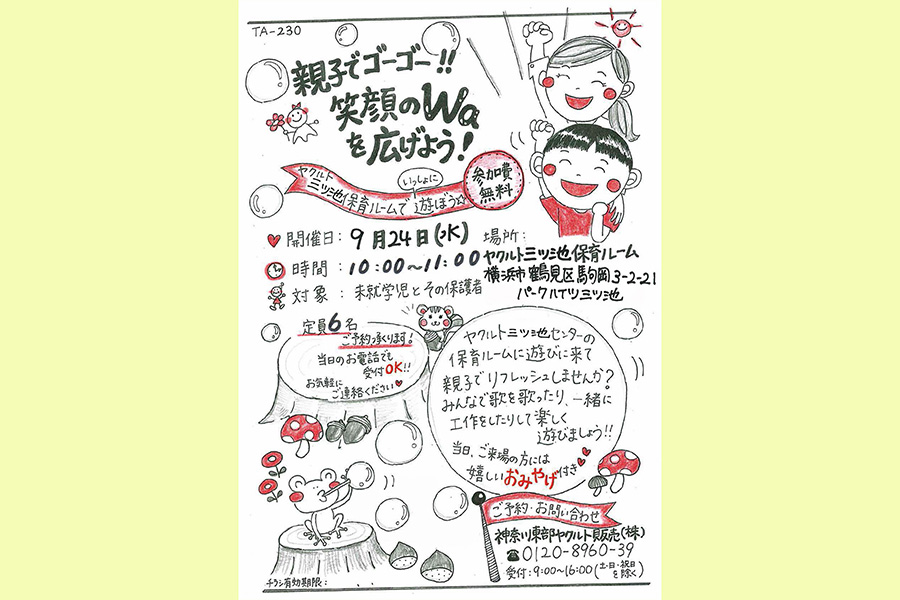 TA-230
親子でゴーゴー!!
笑顔のWa
を広げよう!
ヤクルト
三ツ池保育ルームで遊ぼう☆
いっしょに
参加費
無料
開催日: 9月24日(水)
時間: 10:00～11:00
対象: 未就学児とその保護者
場所:
ヤクルト三ツ池保育ルーム
横浜市鶴見区駒岡3-2-21
パークハイツ三ツ池
定員6名
ご予約承ります!
当日のお電話でも
受付OK!!
お気軽に
ご連絡ください♥
ヤクルト三ツ池センターの
保育ルームに遊びに来て
親子でリフレッシュしませんか?
みんなで歌を歌ったり、一緒に
工作をしたりして楽しく
遊びましょう!!
当日、ご来場の方には
嬉しいおみやげ付き♥♥
ご予約・お問い合わせ
神奈川東部ヤクルト販売(株)
☎0120-8960-39
受付:9:00～16:00(土・日・祝日を除く)
チラシ有効期限: . .